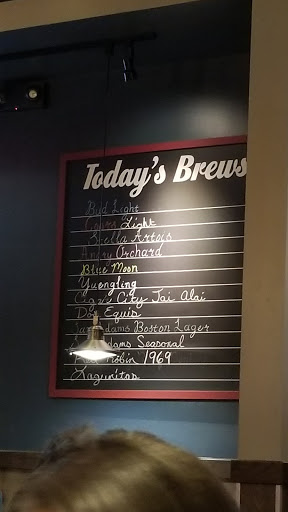 Today's Brews
Bud Light
Coors Light
Stella Artois
Angry Orchard
Blue Moon
Yuengling
Cigar City Jai Alai
Dos Equis
Sam Adams Boston Lager
Adams Seasonal
Robin 1969
Lagunitas